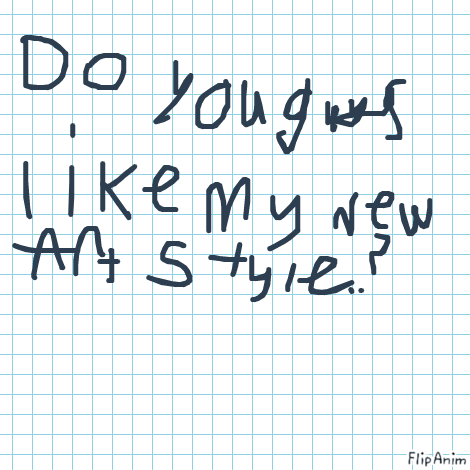 Do you guys
like my new
Art style..?
FlipAnim